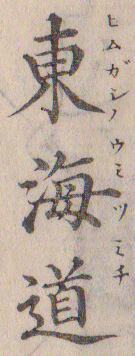 東海道
ヒムガシノウミツミチ